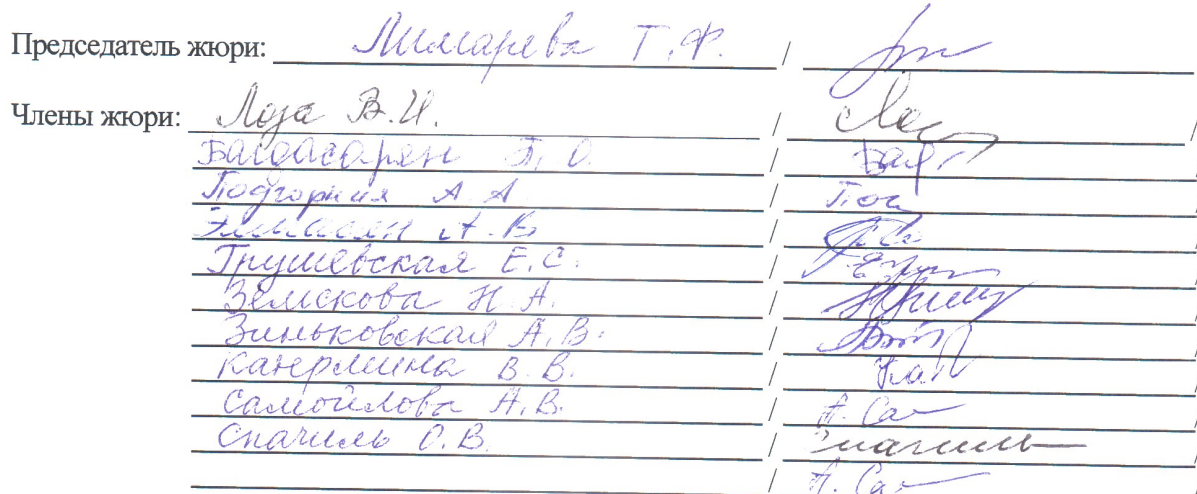 Председатель жюри: Лимарева Т.Ф. /
Члены жюри: Лоза В.И. /
Багдасарян Т.О. /
Подгорная А.А /
Элмасян А.В /
Грушевская Е.С. /
Земскова Н.А. /
Зиньковская А.В. /
Канрмина В.В. /
Самойлова А.В. / А. Са
Спачиль О.В. / Спачиль
/ А. Са